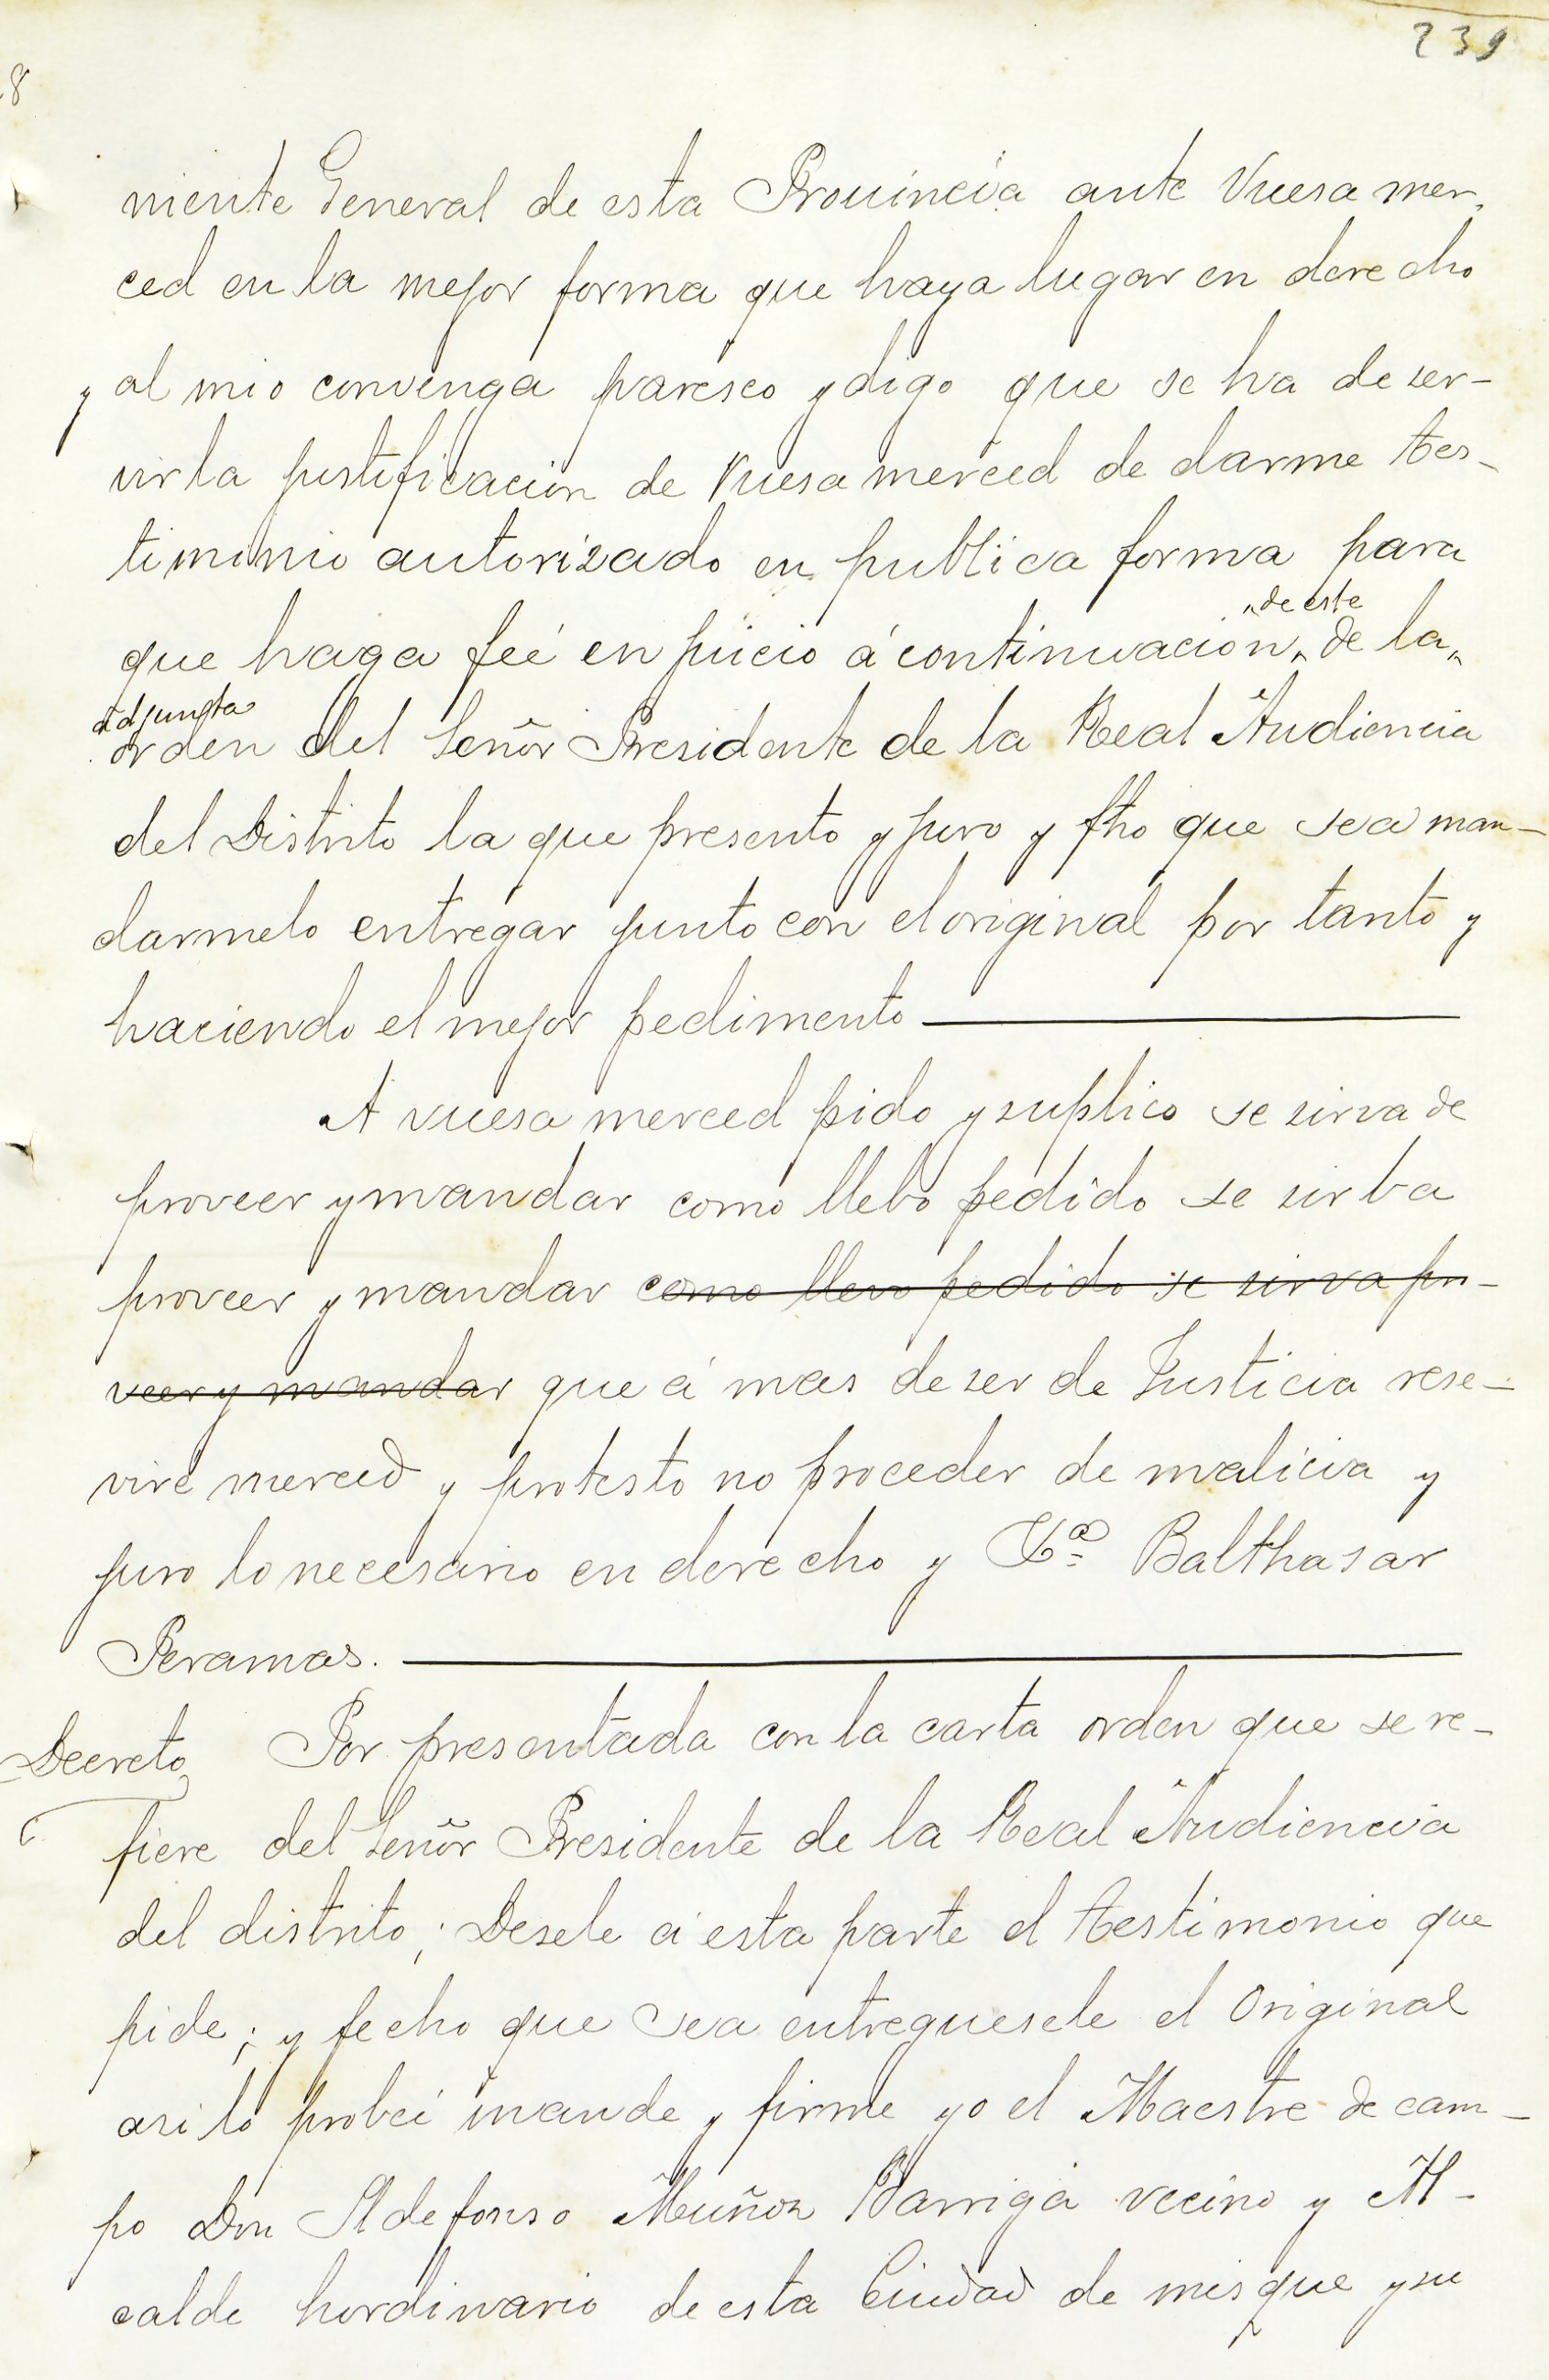 239
8
niente General de esta Prouincia ante Vuesa mer-
ced en la mejor forma que haya lugar en derecho
y al mio convenga paresco y digo que se ha de ser-
vir la justificacion de Vuesa merced de darme tes-
timonio autorizado en publica forma para
"de este
que haga feé en juicio á continuacion "de la"
adjungta
orden del Señor Presidente de la Real Audiencia
del Distrito la que presento y juro y fho que sea man-
darmelo entregar junto con el original por tanto y
haciendo el mejor pedimento
A vuesa merced pido y suplico se sirva de
proveer y mandar como llebo pedido se sirba
proveer y mandar como llevo pedido se sirva pro-
veer y mandar que á mas de ser de Justicia rese-
vire merced y protesto no proceder de malicia y
juro lo necesario en derecho y Balthasar
Peramas.
Decreto Por presentada con la carta orden que se re-
fiere del Señor Presidente de la Real Audiencia
del distrito; Desele á esta parte el testimonio que
pide; y fecho que sea entreguesele el Original
asi lo probeí mande y firme yo el Maestre de cam-
po Don Ildefonso Muñoz Barriga vecino y Al-
calde hordinario de esta Ciudad de misque y su